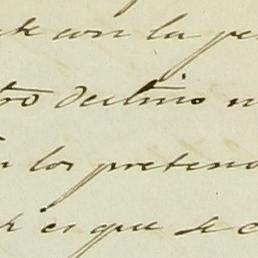 con la pe
tro destino n
los pretend
es que se c